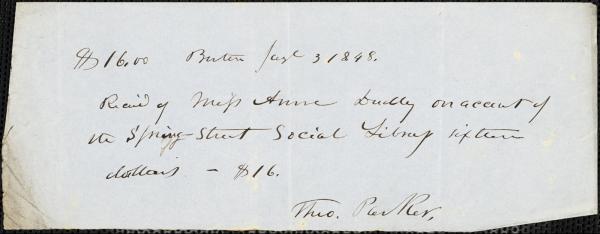 $16.00 Boston Jany 3 1848.
Rec'd of Miss Anne Dudley on account of
the Spring-Street Social Library sixteen
dollars – $16.
Theo. Parker.